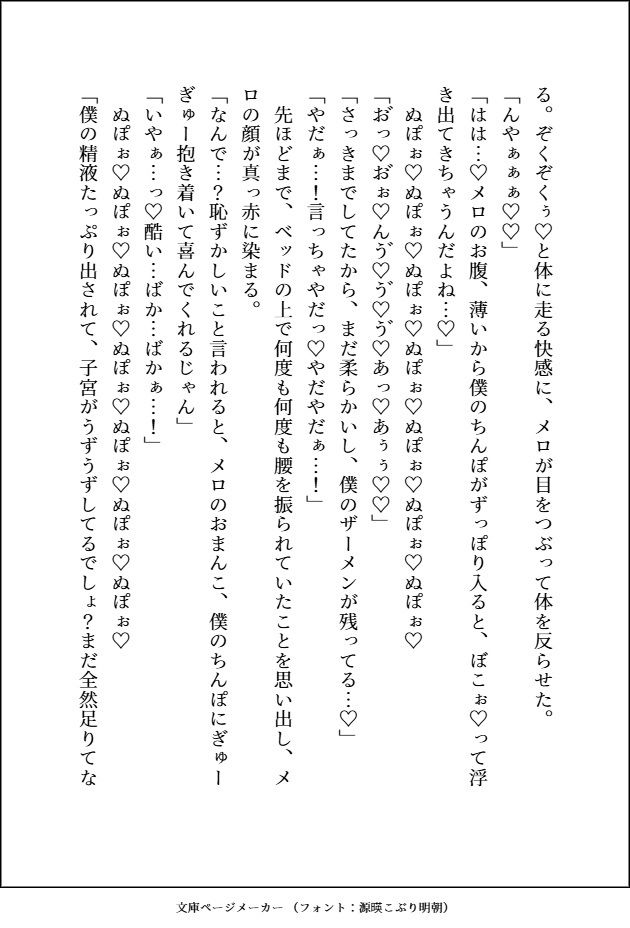 る。ぞくぞくぅ♡と体に走る快感に、メロが目をつぶって体を反らせた。
「んやぁぁぁ♡♡」
「はは…♡メロのお腹、薄いから僕のちんぽがずっぽり入ると、ぼこぉ♡って浮
き出てきちゃうんだよね…♡」
　ぬぽぉ♡ぬぽぉ♡ぬぽぉ♡ぬぽぉ♡ぬぽぉ♡ぬぽぉ♡ぬぽぉ♡
「お゛っ♡お゛ぉ♡んゔ♡ゔ♡ゔ♡あっ♡あぅぅ♡♡」
「さっきまでしてたから、まだ柔らかいし、僕のザーメンが残ってる…♡」
「やだぁ…！言っちゃやだっ♡やだやだぁ…！」
　先ほどまで、ベッドの上で何度も何度も腰を振られていたことを思い出し、メ
ロの顔が真っ赤に染まる。
「なんで…？恥ずかしいこと言われると、メロのおまんこ、僕のちんぽにぎゅー
ぎゅー抱き着いて喜んでくれるじゃん」
「いやぁ…っ♡酷い…ばか…ばかぁ…！」
　ぬぽぉ♡ぬぽぉ♡ぬぽぉ♡ぬぽぉ♡ぬぽぉ♡ぬぽぉ♡ぬぽぉ♡
「僕の精液たっぷり出されて、子宮がうずうずしてるでしょ？まだ全然足りてな
文庫ページメーカー（フォント：源暎こぶり明朝）